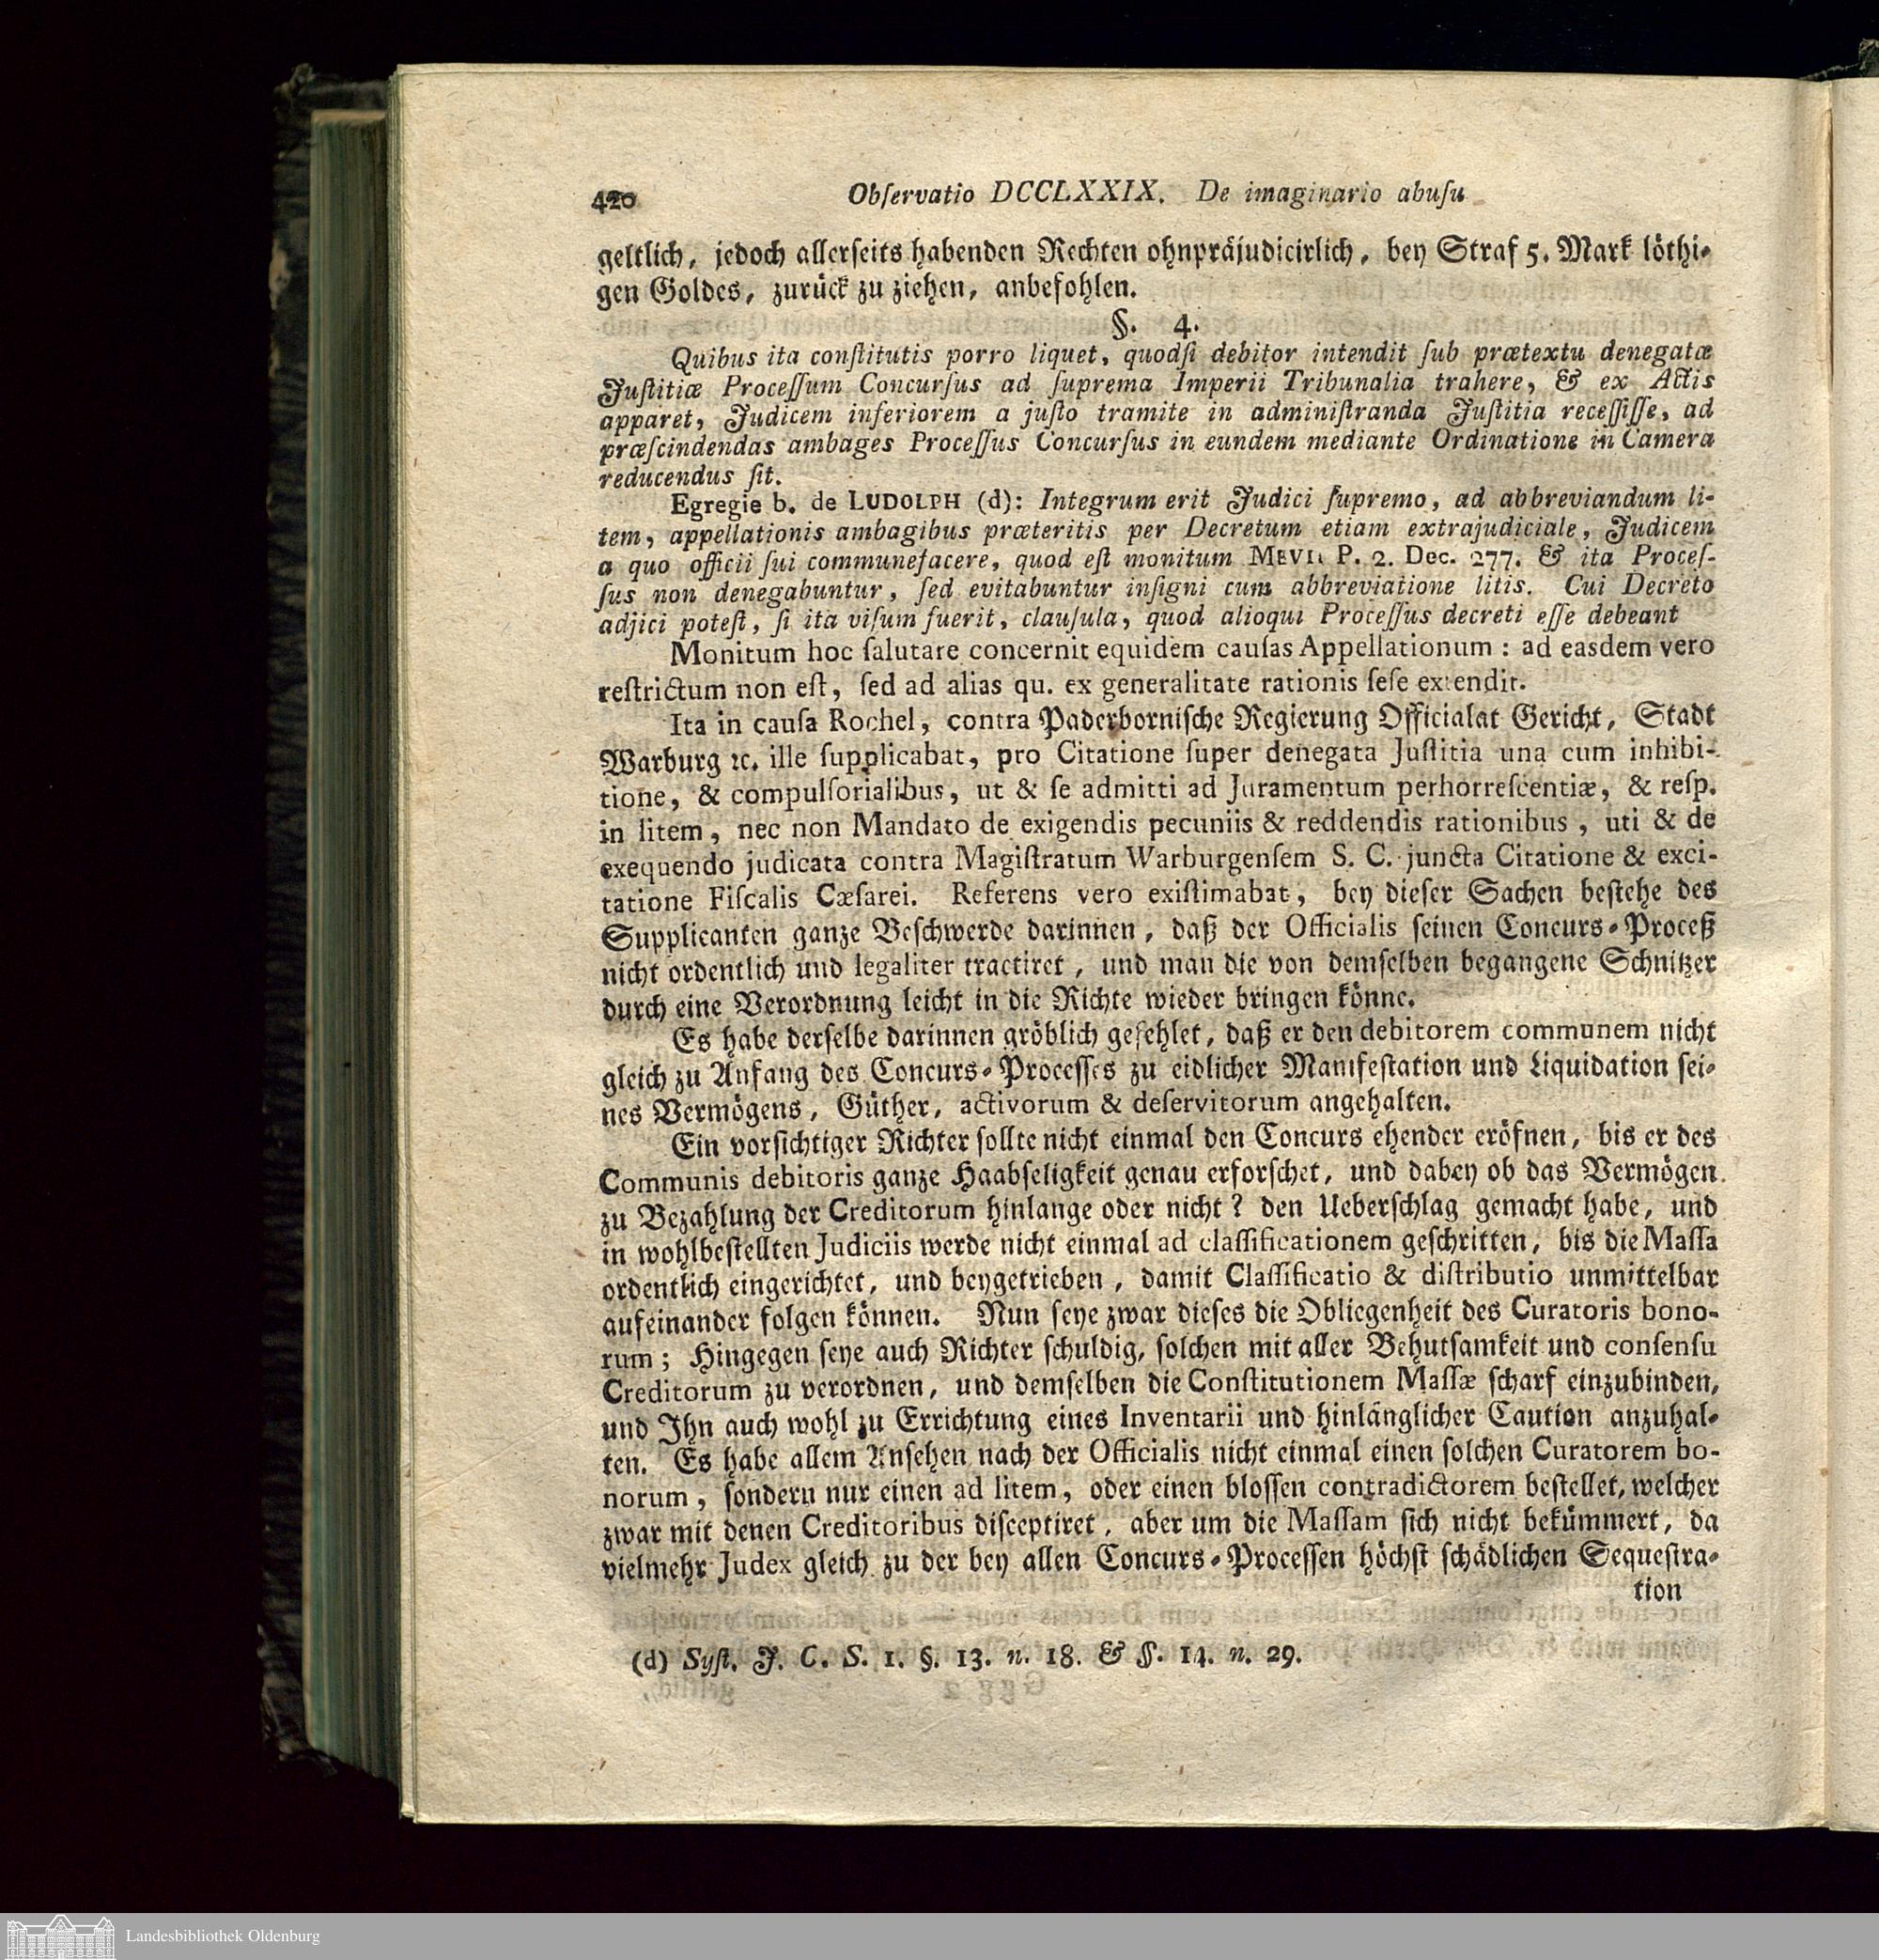 420 Obſervatio DCCLXXIX. De imaginario abuſu
geltlich, jedoch allerſeits habenden Rechten ohnpräjudicirlich, bey Straf 5. Mark löthi-
gen Goldes, zurück zu ziehen, anbefohlen.
§. 4.
Quibus ita conſtitutis porro liquet, quodſi debitor intendit ſub prætextu denegatæ
Juſtitiæ Proceſſum Concurſus ad ſuprema Imperii Tribunalia trahere, & ex Actis
apparet, Judicem inferiorem a juſto tramite in adminiſtranda Juſtitia receſſiſſe, ad
præſcindendas ambages Proceſſus Concurſus in eundem mediante Ordinatione in Camera
reducendus ſit.
Egregie b. de LUDOLPH (d): Integrum erit Judici ſupremo, ad abbreviandum li-
tem, appellationis ambagibus præteritis per Decretum etiam extrajudiciale, Judicem
a quo officii ſui communefacere, quod eſt monitum MEVII P. 2. Dec. 277. & ita Proceſ-
ſus non denegabuntur, ſed evitabuntur inſigni cum abbreviatione litis. Cui Decreto
adjici poteſt, ſi ita viſum fuerit, clauſula, quod alioqui Proceſſus decreti eſſe debeant
Monitum hoc ſalutare concernit equidem cauſas Appellationum : ad easdem vero
reſtrictum non eſt, ſed ad alias qu. ex generalitate rationis ſeſe extendit.
Ita in cauſa Rochel, contra Paderborniſche Regierung Officialat Gericht, Stadt
Warburg ꝛc. ille ſupplicabat, pro Citatione ſuper denegata Juſtitia una cum inhibi-
tione, & compulſorialibus, ut & ſe admitti ad Juramentum perhorreſcentiæ, & reſp.
in litem, nec non Mandato de exigendis pecuniis & reddendis rationibus, uti & de
exequendo judicata contra Magiſtratum Warburgenſem S. C. juncta Citatione & exci-
tatione Fiſcalis Cæſarei. Referens vero exiſtimabat, bey dieſer Sachen beſtehe des
Supplicanten ganze Beſchwerde darinnen, daß der Officialis ſeinen Concurs-Proceß
nicht ordentlich und legaliter tractiret, und man die von demſelben begangene Schnitzer
durch eine Verordnung leicht in die Richte wieder bringen könne.
Es habe derſelbe darinnen gröblich gefehlet, daß er den debitorem communem nicht
gleich zu Anfang des Concurs-Proceſſes zu eidlicher Manifeſtation und Liquidation ſei-
nes Vermögens, Güther, activorum & deſervitorum angehalten.
Ein vorſichtiger Richter ſollte nicht einmal den Concurs ehender eröfnen, bis er des
Communis debitoris ganze Haabſeligkeit genau erforſchet, und dabey ob das Vermögen
zu Bezahlung der Creditorum hinlange oder nicht? den Ueberſchlag gemacht habe, und
in wohlbeſtellten Judiciis werde nicht einmal ad claſſificationem geſchritten, bis die Maſſa
ordentlich eingerichtet, und beygetrieben, damit Claſſificatio & diſtributio unmittelbar
aufeinander folgen können. Nun ſeye zwar dieſes die Obliegenheit des Curatoris bono-
rum; Hingegen ſeye auch Richter ſchuldig, ſolchen mit aller Behutſamkeit und conſenſu
Creditorum zu verordnen, und demſelben die Conſtitutionem Maſſæ ſcharf einzubinden,
und Ihn auch wohl zu Errichtung eines Inventarii und hinlänglicher Caution anzuhal-
ten. Es habe allem Anſehen nach der Officialis nicht einmal einen ſolchen Curatorem bo-
norum, ſondern nur einen ad litem, oder einen bloſſen contradictorem beſtellet, welcher
zwar mit denen Creditoribus diſceptiret, aber um die Maſſam ſich nicht bekümmert, da
vielmehr Judex gleich zu der bey allen Concurs-Proceſſen höchſt ſchädlichen Sequeſtra-
tion
(d) Syſt. J. C. S. 1. §. 13. n. 18. & §. 14. n. 29.
Landesbibliothek Oldenburg